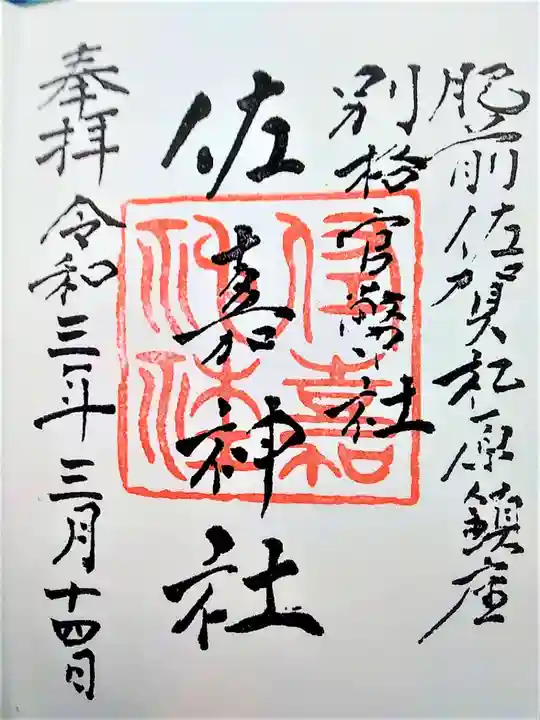 肥前佐賀松原鎮座
別格官幣社
佐嘉神社
奉拝 令和三年三月十四日
佐嘉神社